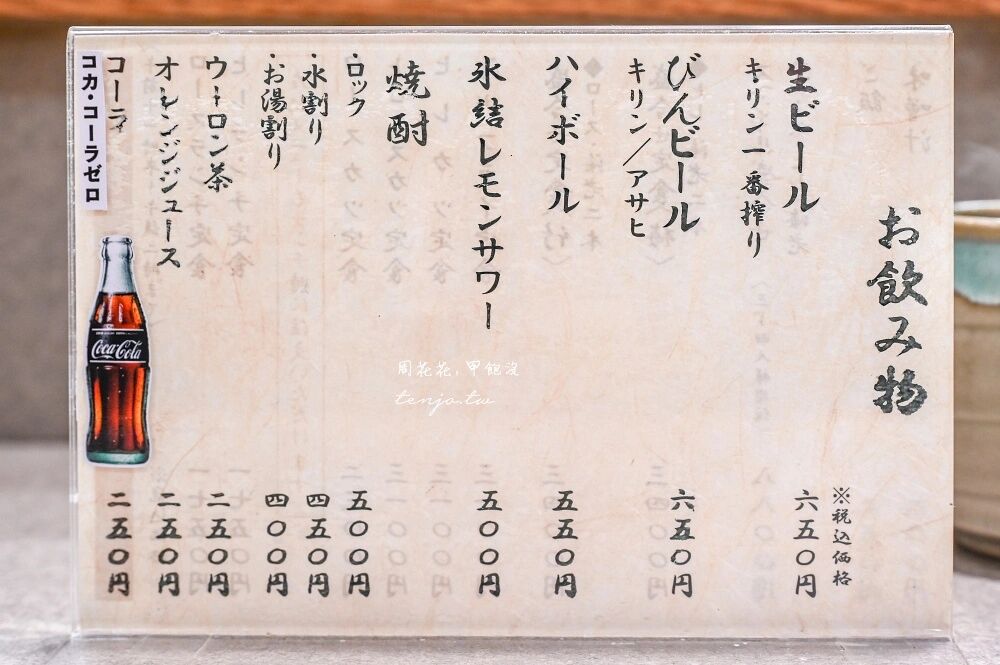 お飲み物
※税込価格
生ビール
キリン一番搾り
六五〇円
びんビール
キリン／アサヒ
六五〇円
ハイボール
五五〇円
氷結レモンサワー
五〇〇円
焼酎
・ロック
五〇〇円
・水割り
四五〇円
・お湯割り
四〇〇円
ウーロン茶
二五〇円
オレンジジュース
二五〇円
コーラ
コカ・コーラゼロ
二五〇円
Coca-Cola
周花花，甲飽沒
tenjo.tw